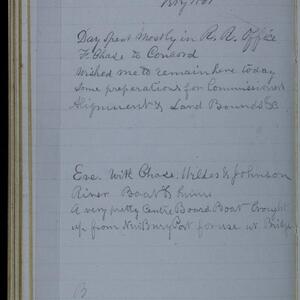 Day spent mostly in R. R. Office
F. Chase to Concord
Wished me to remain here today
some preparations for Commissioners
Alignment & Land Bounds &c
Eve. With Chase, Wildes & Johnson
River Boat
A very pretty Centre Board Boat brought
up from NewBuryPort for use at Bridge
B